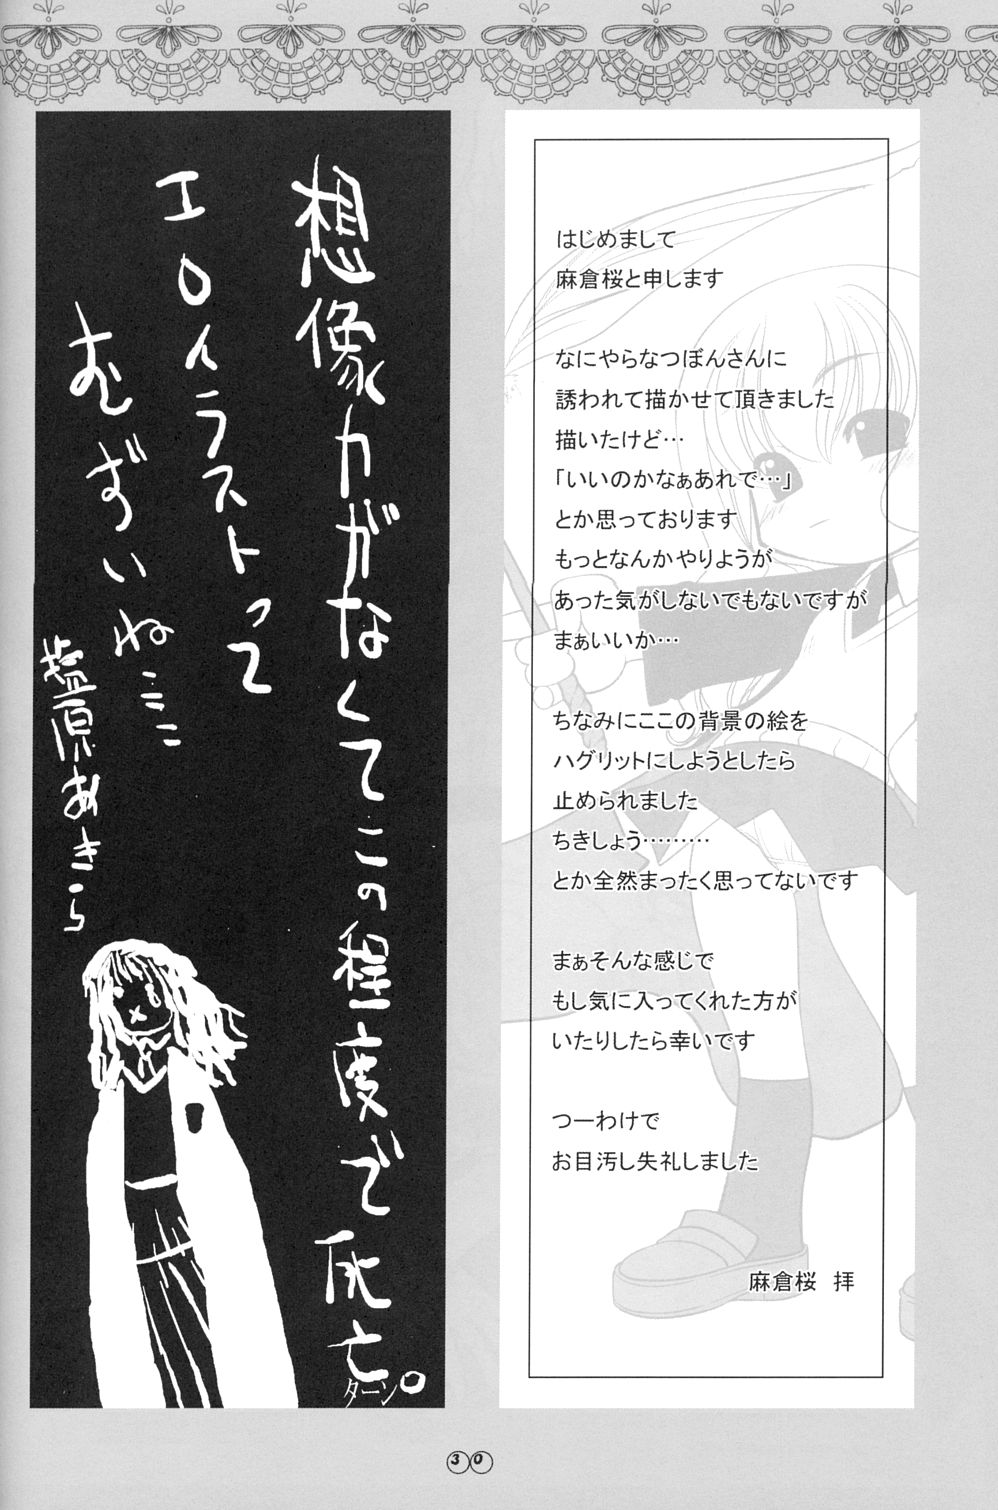 はじめまして
麻倉桜と申します
なにやらなつぼんさんに
誘われて描かせて頂きました
描いたけど…
「いいのかなぁあれで…」
とか思っております
もっとなんかやりようが
あった気がしないでもないですが
まぁいいか…
ちなみにここの背景の絵を
ハグリットにしようとしたら
止められました
ちきしょう………
とか全然まったく思ってないです
まぁそんな感じで
もし気に入ってくれた方が
いたりしたら幸いです
つーわけで
お目汚し失礼しました
麻倉桜　拝
想像力がなくてこの程度で死亡。
ターン
エロイラストって
むずいね…
塩原あきら
30